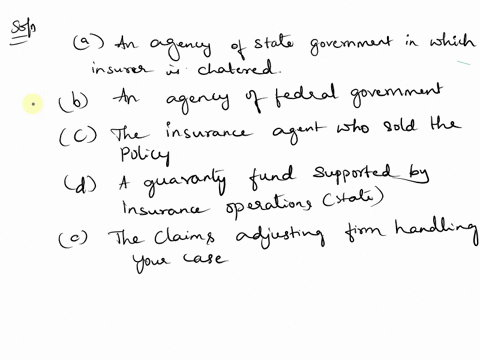 Soln
(a) An agency of state government in which
insurer is chatered.
(b) An agency of federal government
(C) The insurance agent who sold the
policy
(d) A guaranty fund supported by
insurance operations (state)
(e) The claims adjusting firm handling
your case